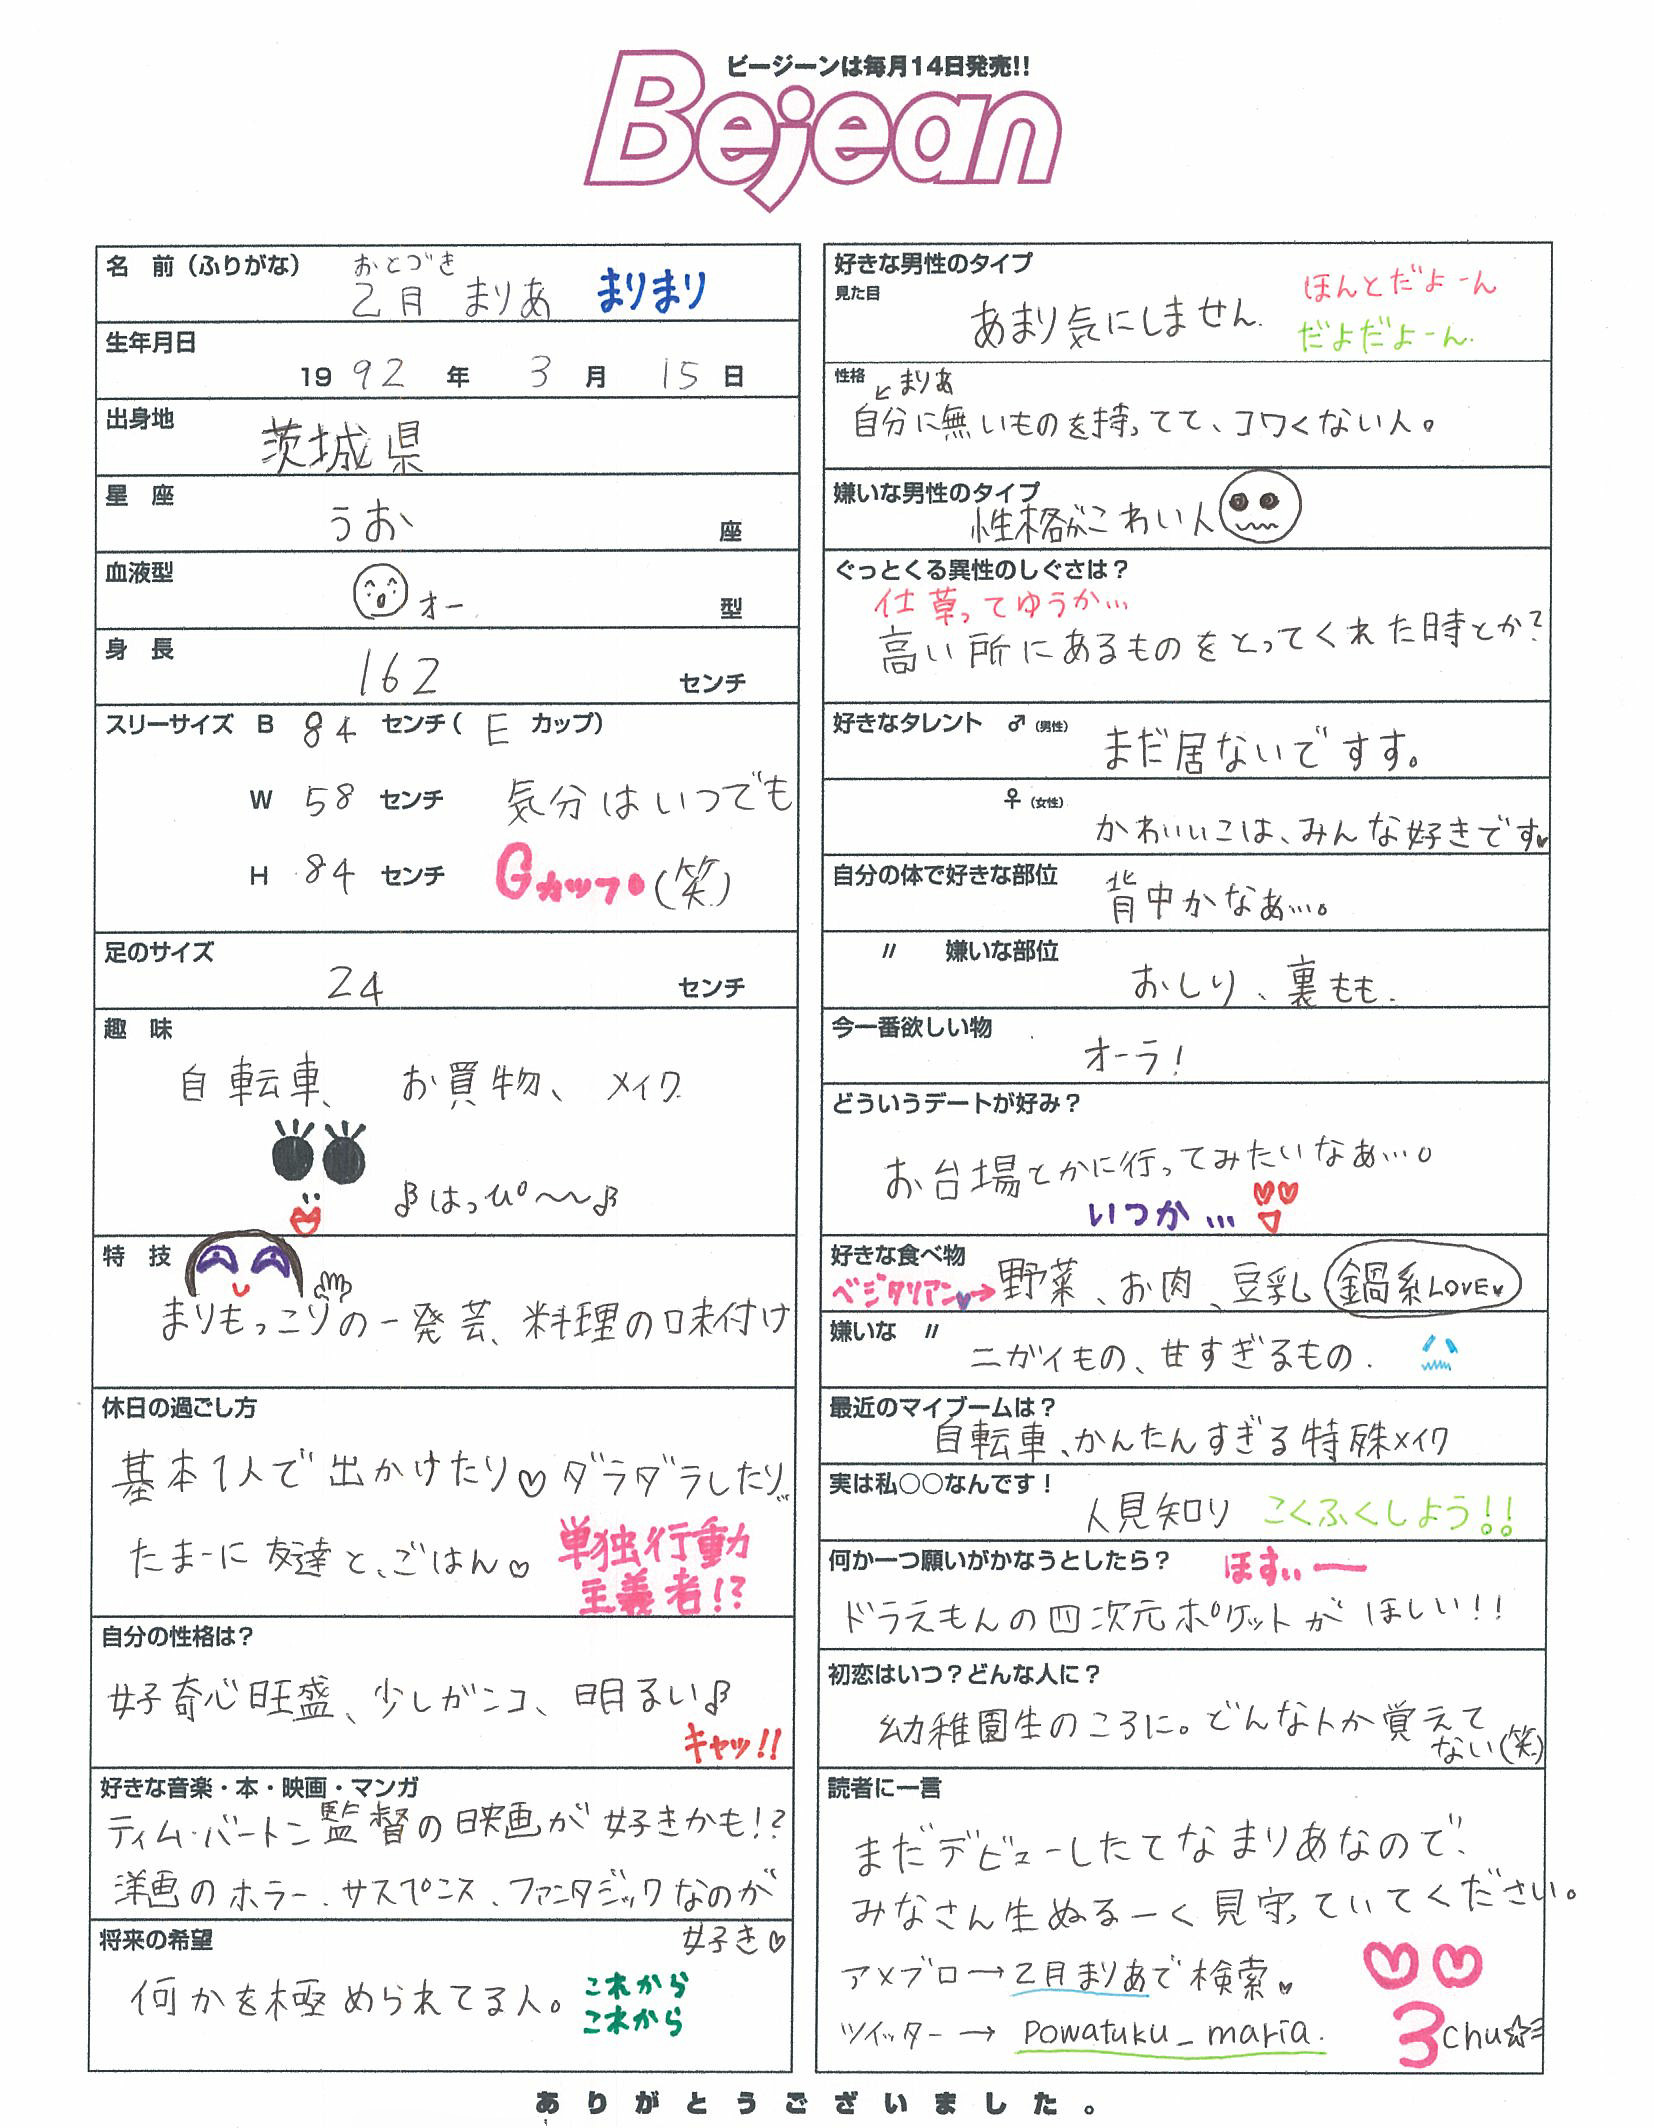 ビージーンは毎月14日発売!!
Bejean
名 前(ふりがな)
おとづき
乙月 まりあ まりまり
生年月日
19 92 年 3 月 15 日
出身地
茨城県
星 座
うお 座
血液型
オー 型
身 長
162 センチ
スリーサイズ B 84 センチ( E カップ)
W 58 センチ 気分はいつでも
H 84 センチ Gカップ(笑)
足のサイズ
24 センチ
趣 味
自転車、お買物、メイク
♪はっぴ〜〜♪
特 技
まりもっこりの一発芸、料理の味付け
休日の過ごし方
基本1人で出かけたり♡ダラダラしたり。
たまーに友達と、ごはん♡ 単独行動
主義者!?
自分の性格は?
好奇心旺盛、少しガンコ、明るい♪
キャッ!!
好きな音楽・本・映画・マンガ
ティム・バートン監督の映画が好きかも!?
洋画のホラー、サスペンス、ファンタジックなのが
好き♡
将来の希望
何かを極められてる人。 これから
これから
好きな男性のタイプ
見た目
あまり気にしません. ほんとだよーん
だよだよーん.
性格 とまりあ
自分に無いものを持ってて、コワくない人。
嫌いな男性のタイプ
性格がこわい人
ぐっとくる異性のしぐさは?
仕草ってゆうか…
高い所にあるものをとってくれた時とか?
好きなタレント ♂(男性)
まだ居ないですす。
♀(女性)
かわいいこは、みんな好きです♥
自分の体で好きな部位
背中かなぁ…。
〃 嫌いな部位
おしり、裏もも.
今一番欲しい物
オーラ!
どういうデートが好み?
お台場とかに行ってみたいなぁ…。
いつか…
好きな食べ物
ベジタリアン♥→野菜、お肉、豆乳 鍋系LOVE♥
嫌いな 〃
ニガイもの、甘すぎるもの.
最近のマイブームは?
自転車、かんたんすぎる特殊メイク
実は私○○なんです!
人見知り こくふくしよう!!
何か一つ願いがかなうとしたら? ほすぃー
ドラえもんの四次元ポケットがほしい!!
初恋はいつ?どんな人に?
幼稚園生のころに。どんな人か覚えて
ない(笑)
読者に一言
まだデビューしたてなまりあなので、
みなさん生ぬるーく見守っていてください。
アメブロ→乙月まりあで検索♥
ツイッター→ powatuku_maria.
3chu☆彡
ありがとうございました。